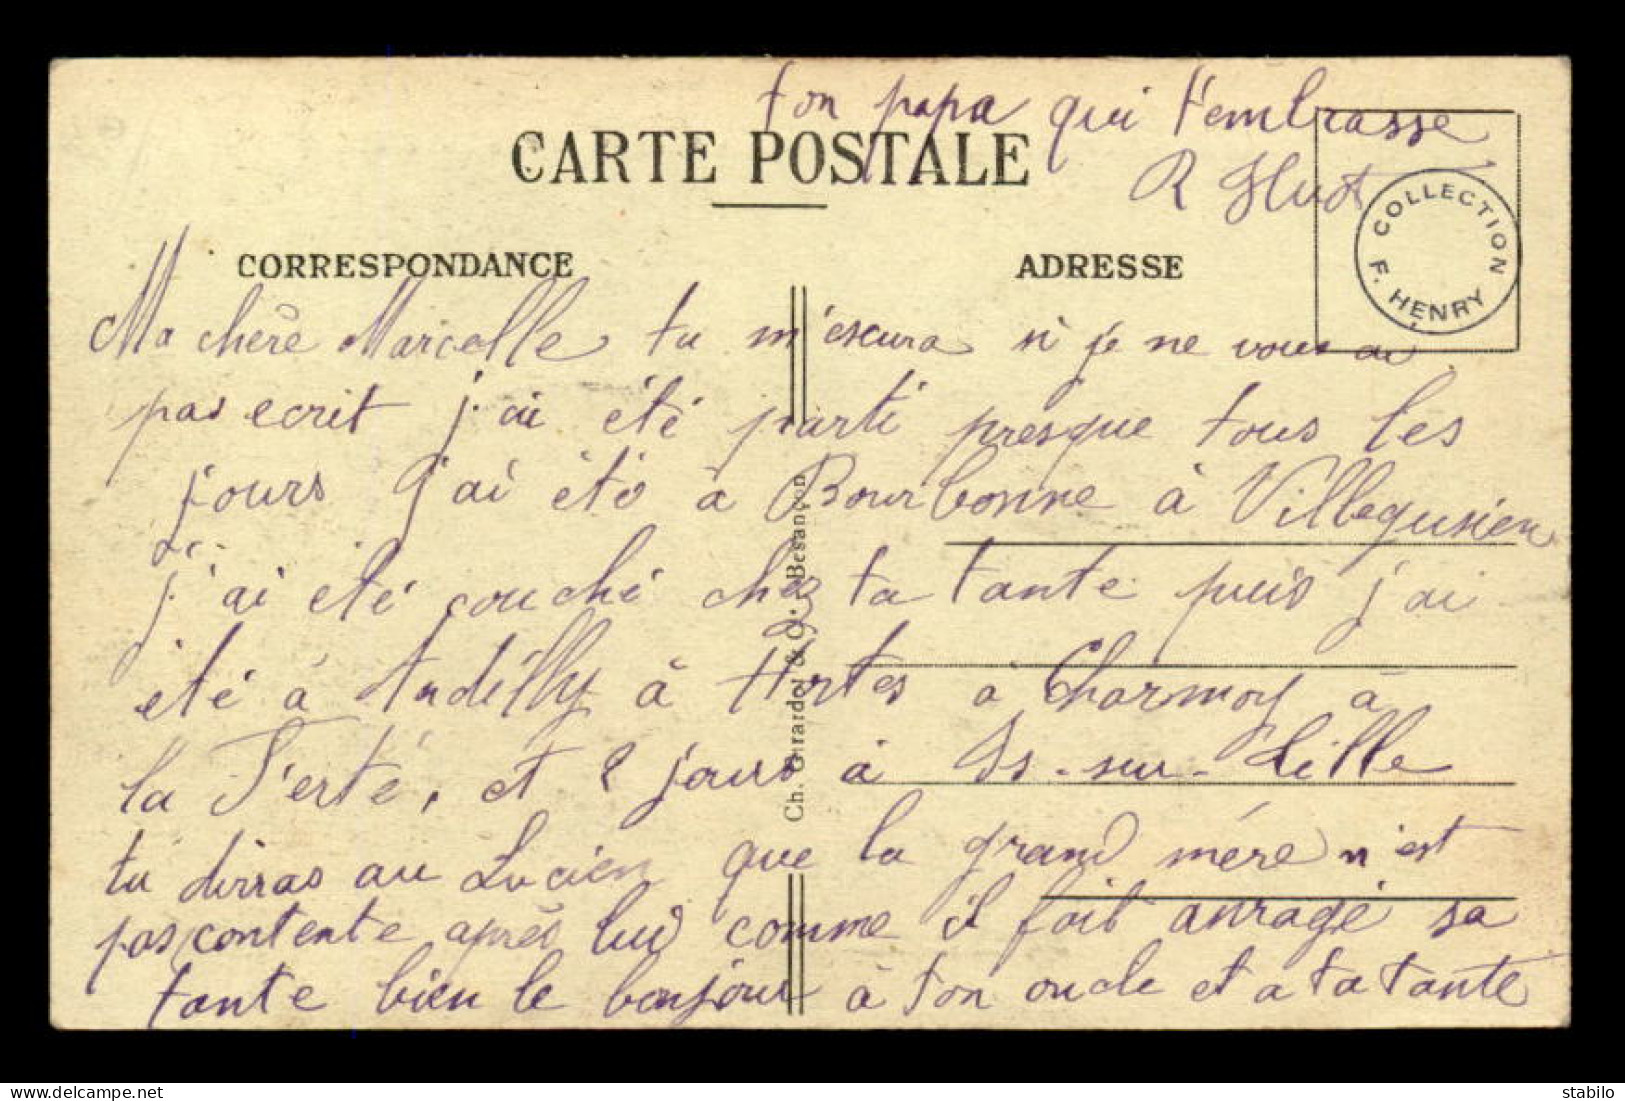 ton papa qui t'embrasse
CARTE POSTALE
R Huot
COLLECTION F. HENRY
CORRESPONDANCE
ADRESSE
Ma chère Marcelle tu m'escura si je ne vous ai
pas ecrit j'ai été parti presque tous les
jours j'ai été à Bourbonne à Villegusien
j'ai eté couché chez ta tante puis j'ai
été à Andilly à Hortes à Charmoy à
la Ferté, et 2 jours à Is-sur-Tille
tu dirras au Lucien que la grand mére n'est
pas contente aprés lui comme il fait anragé sa
tante bien le bonjour à ton oncle et a ta tante
Ch. Girardot & Cie. Besançon
stabilo